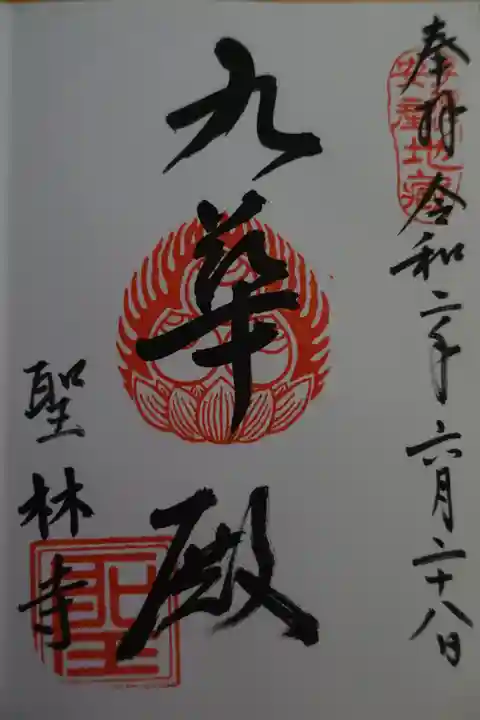 奉拝 令和二年六月二十八日
九華殿
聖林寺